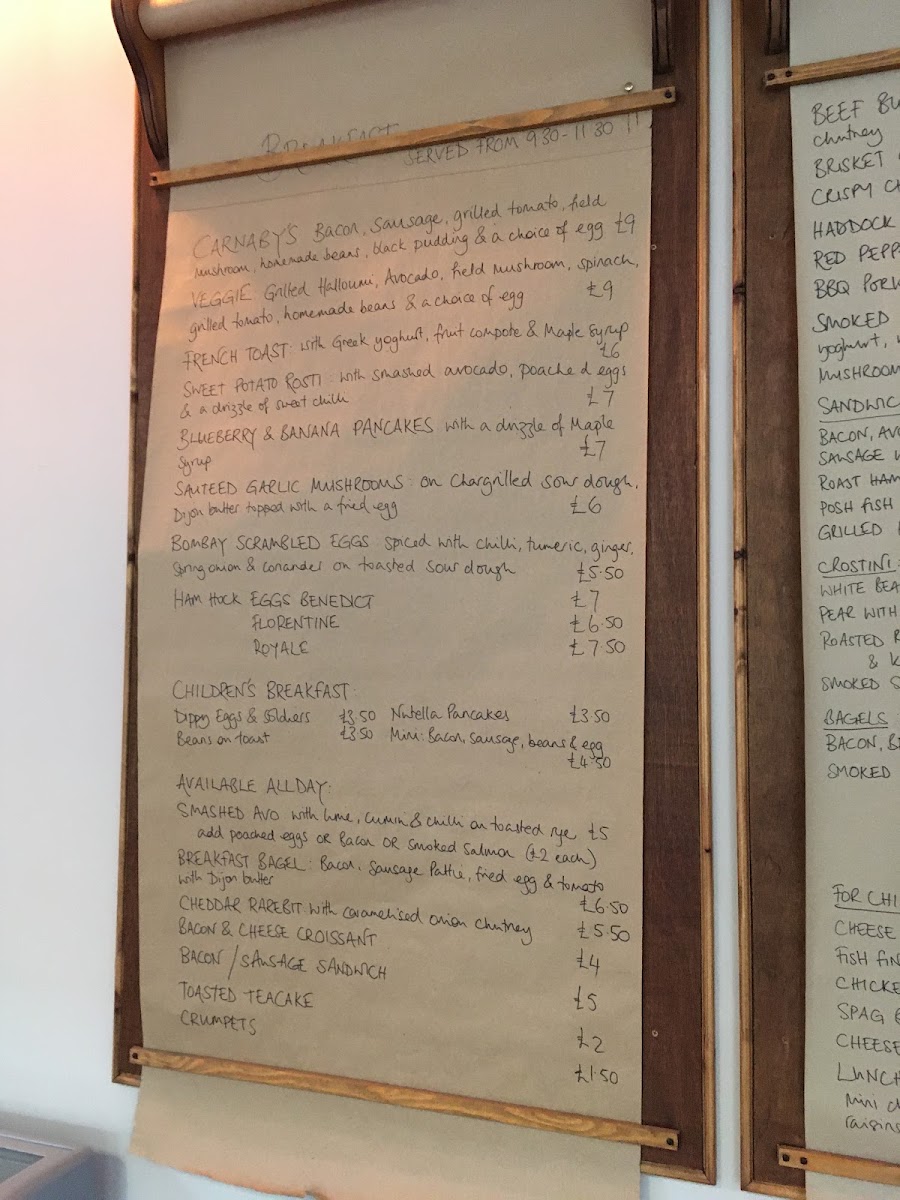 BREAKFAST
SERVED FROM 9 30 - 11 30 !!
CARNABY'S Bacon, Sausage, grilled tomato, field
mushroom, homemade beans, black pudding & a choice of egg £9
VEGGIE Grilled Halloumi, Avocado, field mushroom, spinach,
grilled tomato, homemade beans & a choice of egg £9
FRENCH TOAST: with Greek yoghurt, fruit compote & Maple Syrup
£6
SWEET POTATO ROSTI: with smashed avocado, poached eggs
& a drizzle of sweet chilli £7
BLUEBERRY & BANANA PANCAKES with a drizzle of Maple
Syrup £7
SAUTEED GARLIC MUSHROOMS: on Chargrilled sour dough,
Dijon butter topped with a fried egg £6
BOMBAY SCRAMBLED EGGS spiced with chilli, tumeric, ginger,
Spring onion & coriander on toasted sour dough £5.50
HAM HOCK EGGS BENEDICT £7
FLORENTINE £6.50
ROYALE £7.50
CHILDREN'S BREAKFAST:
Dippy Eggs & Soldiers £3.50 Nutella Pancakes £3.50
Beans on toast £3.50 Mini: Bacon, sausage, beans & egg
£4.50
AVAILABLE ALL DAY:
SMASHED AVO with lime, cumin & chilli on toasted rye £5
add poached eggs OR Bacon OR smoked salmon (£2 each)
BREAKFAST BAGEL: Bacon, Sausage Pattie, fried egg & tomato
with Dijon butter £6.50
CHEDDAR RAREBIT: with caramelised onion chutney £5.50
BACON & CHEESE CROISSANT £4
BACON / SAUSAGE SANDWICH £5
TOASTED TEACAKE £2
CRUMPETS £1.50
BEEF
chutney
BRISKET
CRISPY
HADDOCK
RED
BBQ
SMOKED
yoghurt,
MUSHROOM
BACON,
SAUSAGE
ROAST HAM
POSH FISH
GRILLED
CROSTINI:
WHITE
PEAR WITH
ROASTED
&
SMOKED
BAGELS
BACON,
SMOKED
FOR
CHEESE
FISH
SPAG
CHEESE
Mini
raisins